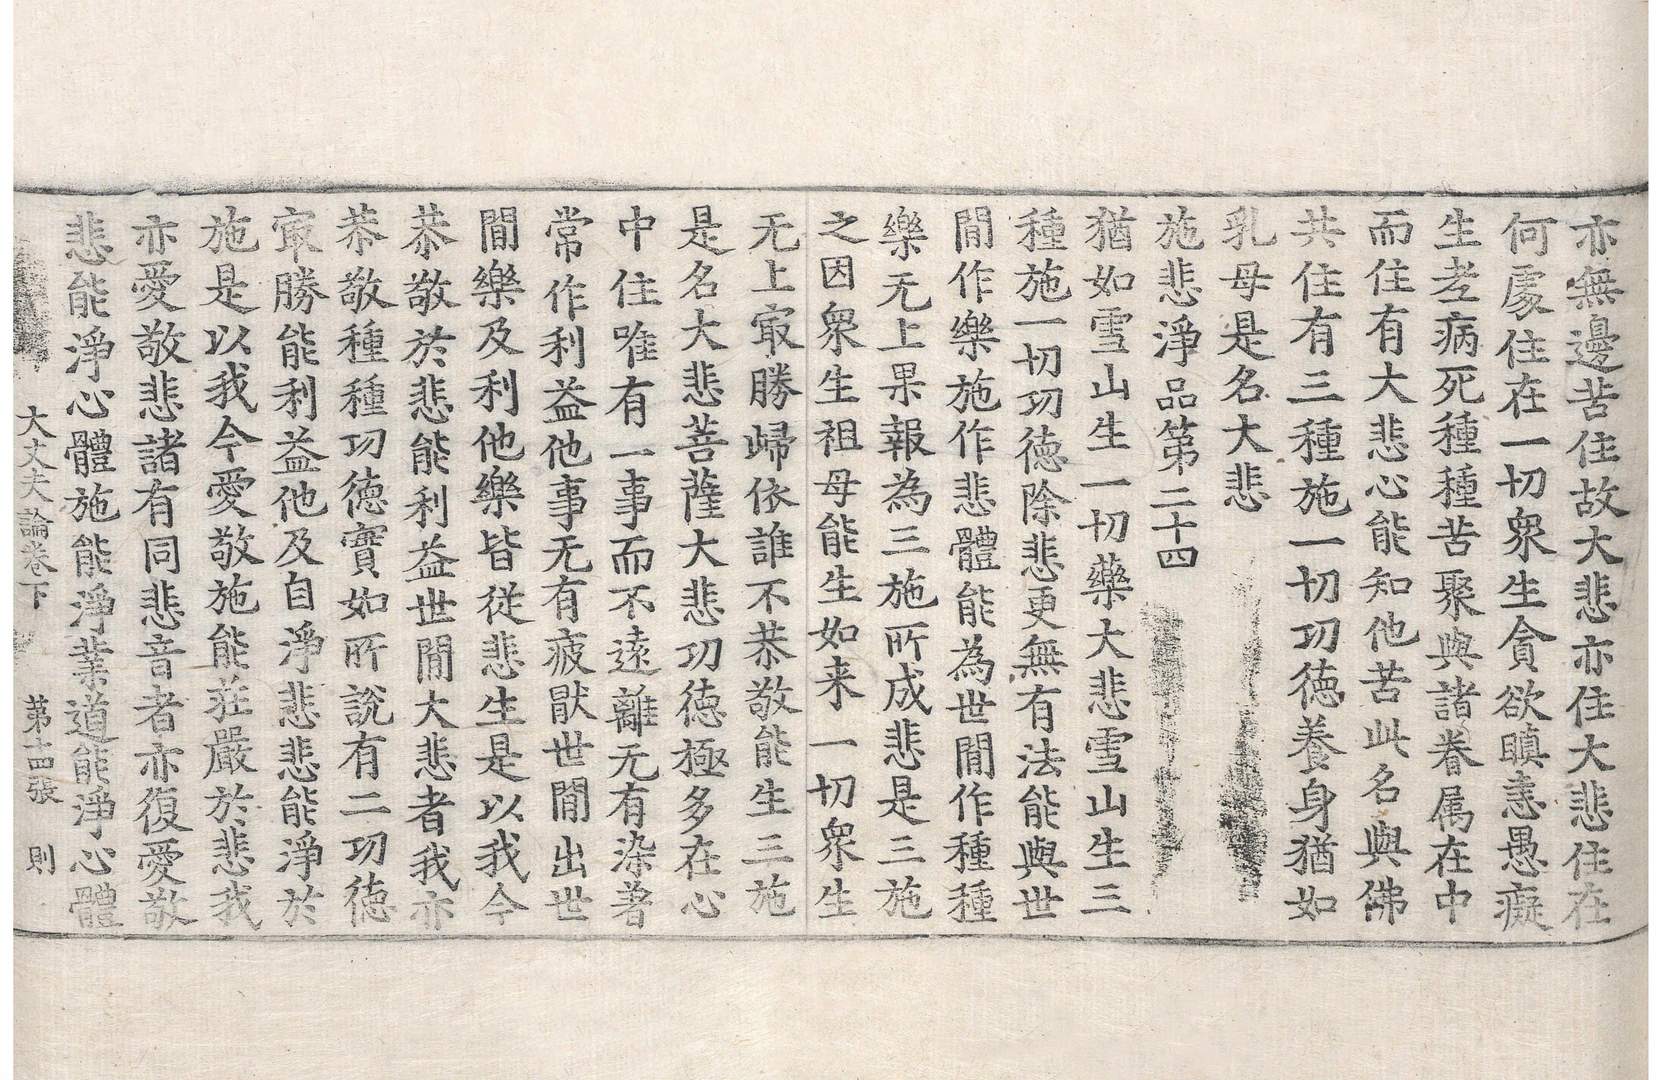 亦無邊苦住故大悲亦住大悲住在
何處住在一切衆生貪欲瞋恚愚癡
生老病死種種苦聚與諸眷属在中
而住有大悲心能知他苦此名與佛
共住有三種施一切功德養身猶如
乳母是名大悲
施悲淨品第二十四
猶如雪山生一切藥大悲雪山生三
種施一切功德除悲更無有法能與世
閒作樂施作悲體能為世閒作種種
樂无上果報為三施所成悲是三施
之因衆生祖母能生如来一切衆生
无上冣勝歸依誰不恭敬能生三施
是名大悲菩薩大悲功德極多在心
中住唯有一事而不遠離无有染著
常作利益他事无有疲猒世閒出世
閒樂及利他樂皆從悲生是以我今
恭敬於悲能利益世閒大悲者我亦
恭敬種種功德實如所說有二功德
冣勝能利益他及自淨悲悲能淨於
施是以我今愛敬施能莊嚴於悲我
亦愛敬悲諸有同悲音者亦復愛敬
悲能淨心體施能淨業道能淨心體
大丈夫論卷下 第十四張 則